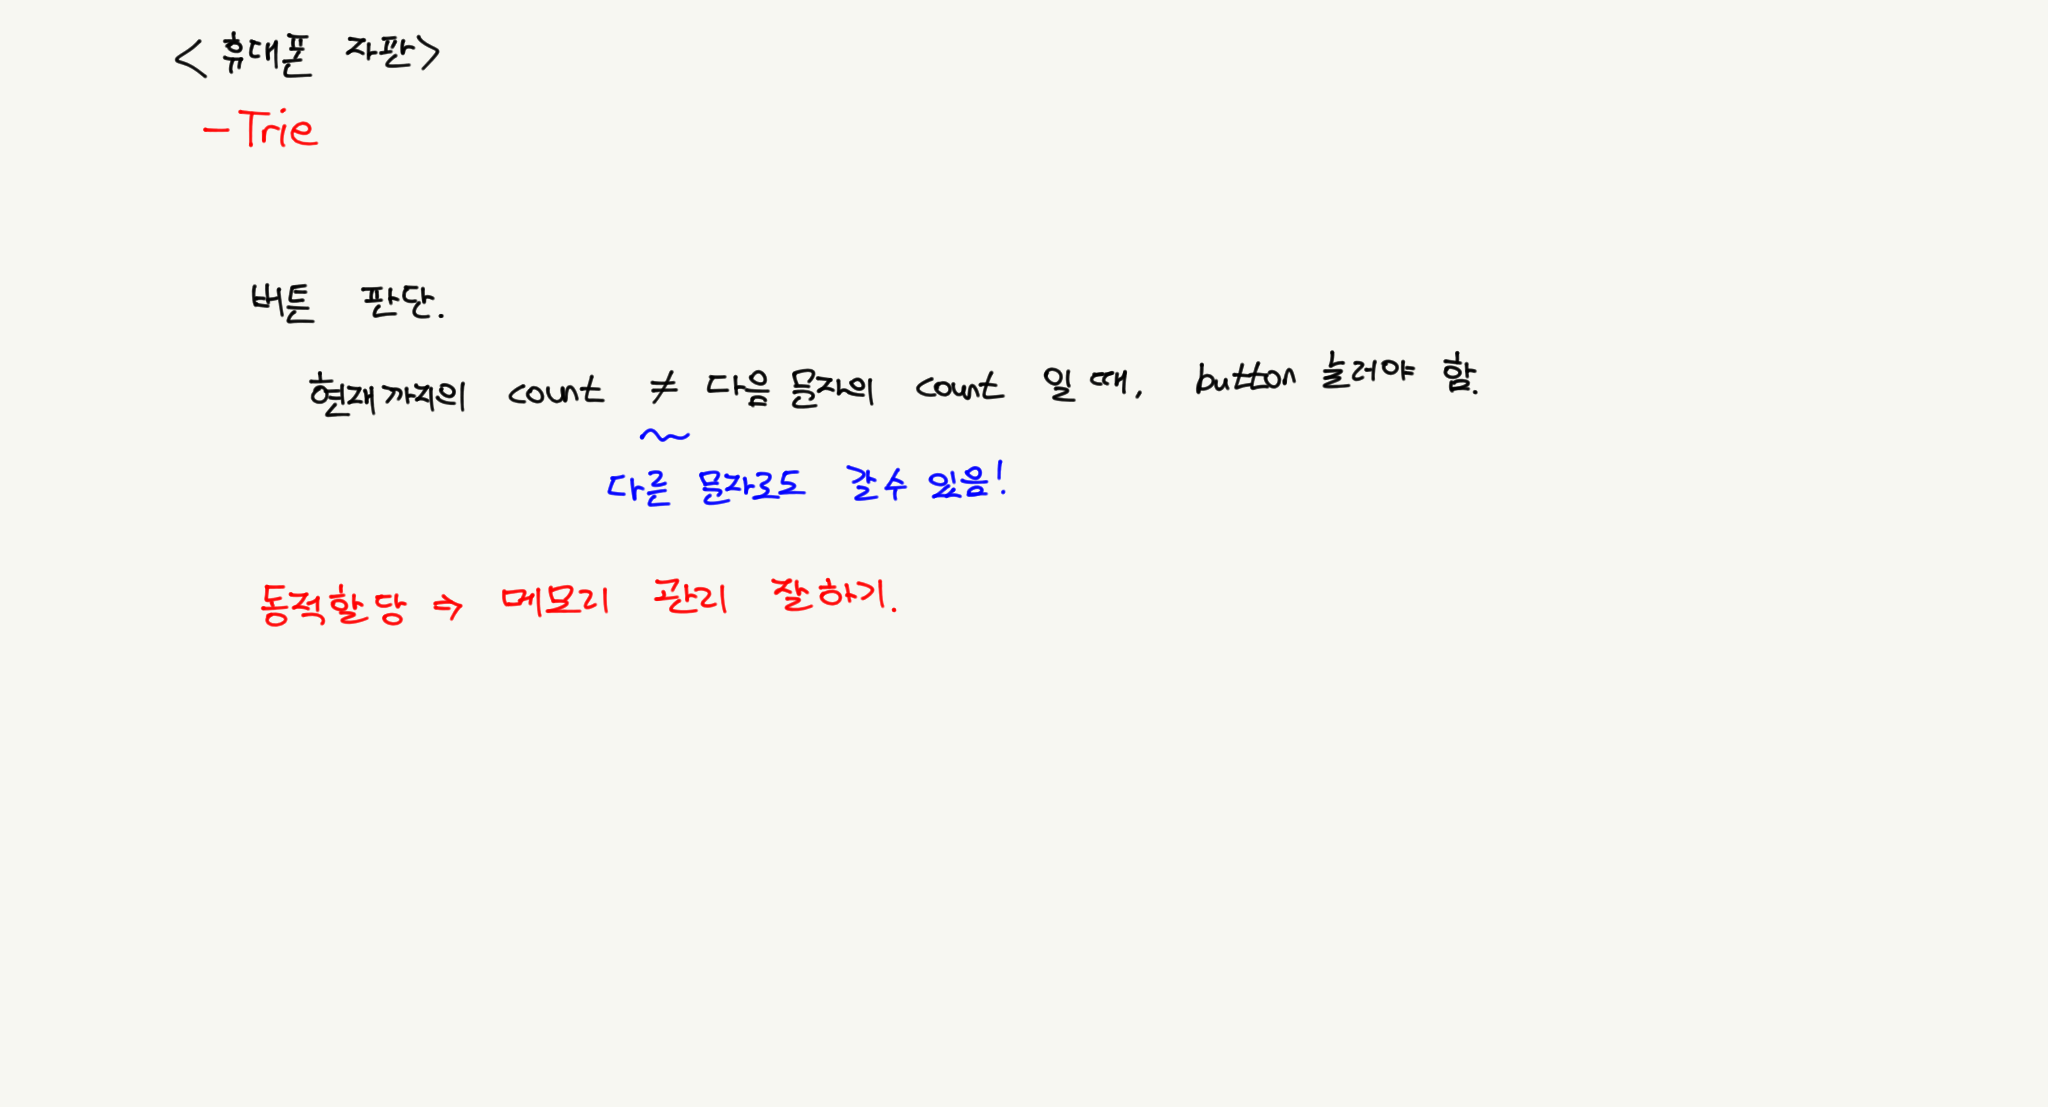 <휴대폰 자판>
- Trie
버튼 판단.
현재까지의 count ≠ 다음 문자의 count 일 때, button 눌러야 함.
다른 문자로도 갈 수 있음!
동적할당 ⇒ 메모리 관리 잘하기.